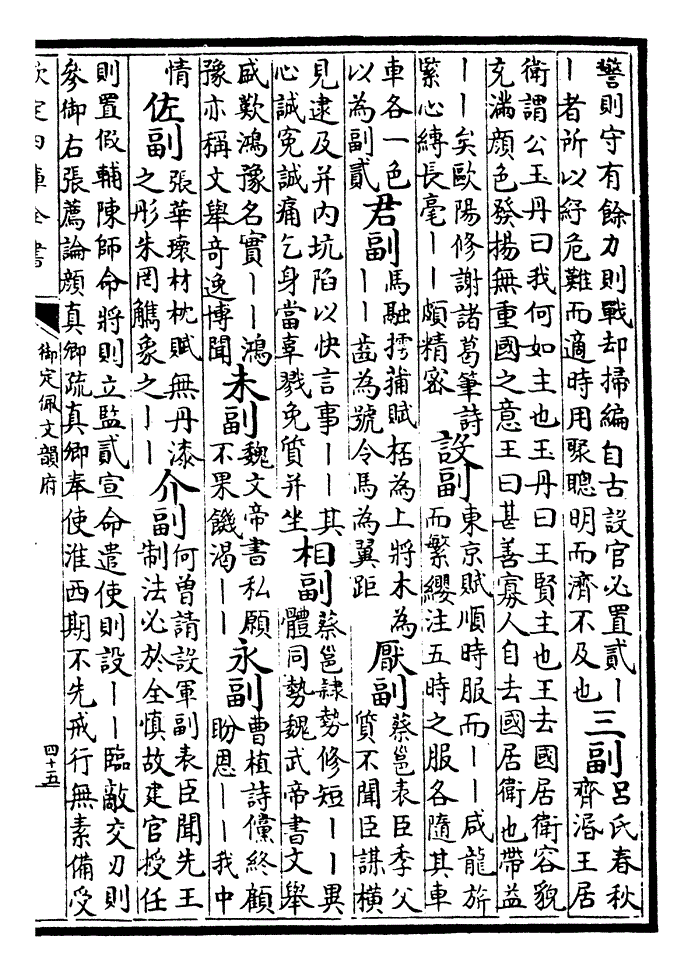 警則守有餘力則戰却掃編自古設官必置貳丨
丨者所以紓危難而適時用聚聰明而濟不及也
三副
呂氏春秋
齊湣王居
衛謂公玉丹曰我何如主也玉丹曰王賢主也王去國居衛容貌
充滿顔色發揚無重國之意王曰甚善寡人自去國居衛也帶益
丨丨矣歐陽修謝諸葛筆詩
緊心縛長毫丨丨頗精密
設副
東京賦順時服而丨丨咸龍旂
而繁纓注五時之服各隨其車
車各一色
以為副貳
君副
馬融摴蒲賦栝為上將木為
丨丨齒為號令馬為翼距
厭副
蔡邕表臣季父
質不聞臣謀横
見逮及并内坑陷以快言事丨丨其
心誠寃誠痛乞身當辜戮免質并坐
相副
蔡邕隸勢修短丨丨異
體同勢魏武帝書文舉
盛歎鴻豫名實丨丨鴻
豫亦稱文舉奇逸博聞
未副
魏文帝書私願
不果饑渴丨丨
永副
曹植詩儻終顧
盼恩丨丨我中
情
佐副
張華瓌材枕賦無丹漆
之彤朱罔觹象之丨丨
介副
何曾請設軍副表臣聞先王
制法必於全慎故建官授任
則置假輔陳師命將則立監貳宣命遣使則設丨丨臨敵交刃則
參御右張薦論顔真卿疏真卿奉使淮西期不先戒行無素備受
欽定四庫全書
御定佩文韻府
四十五